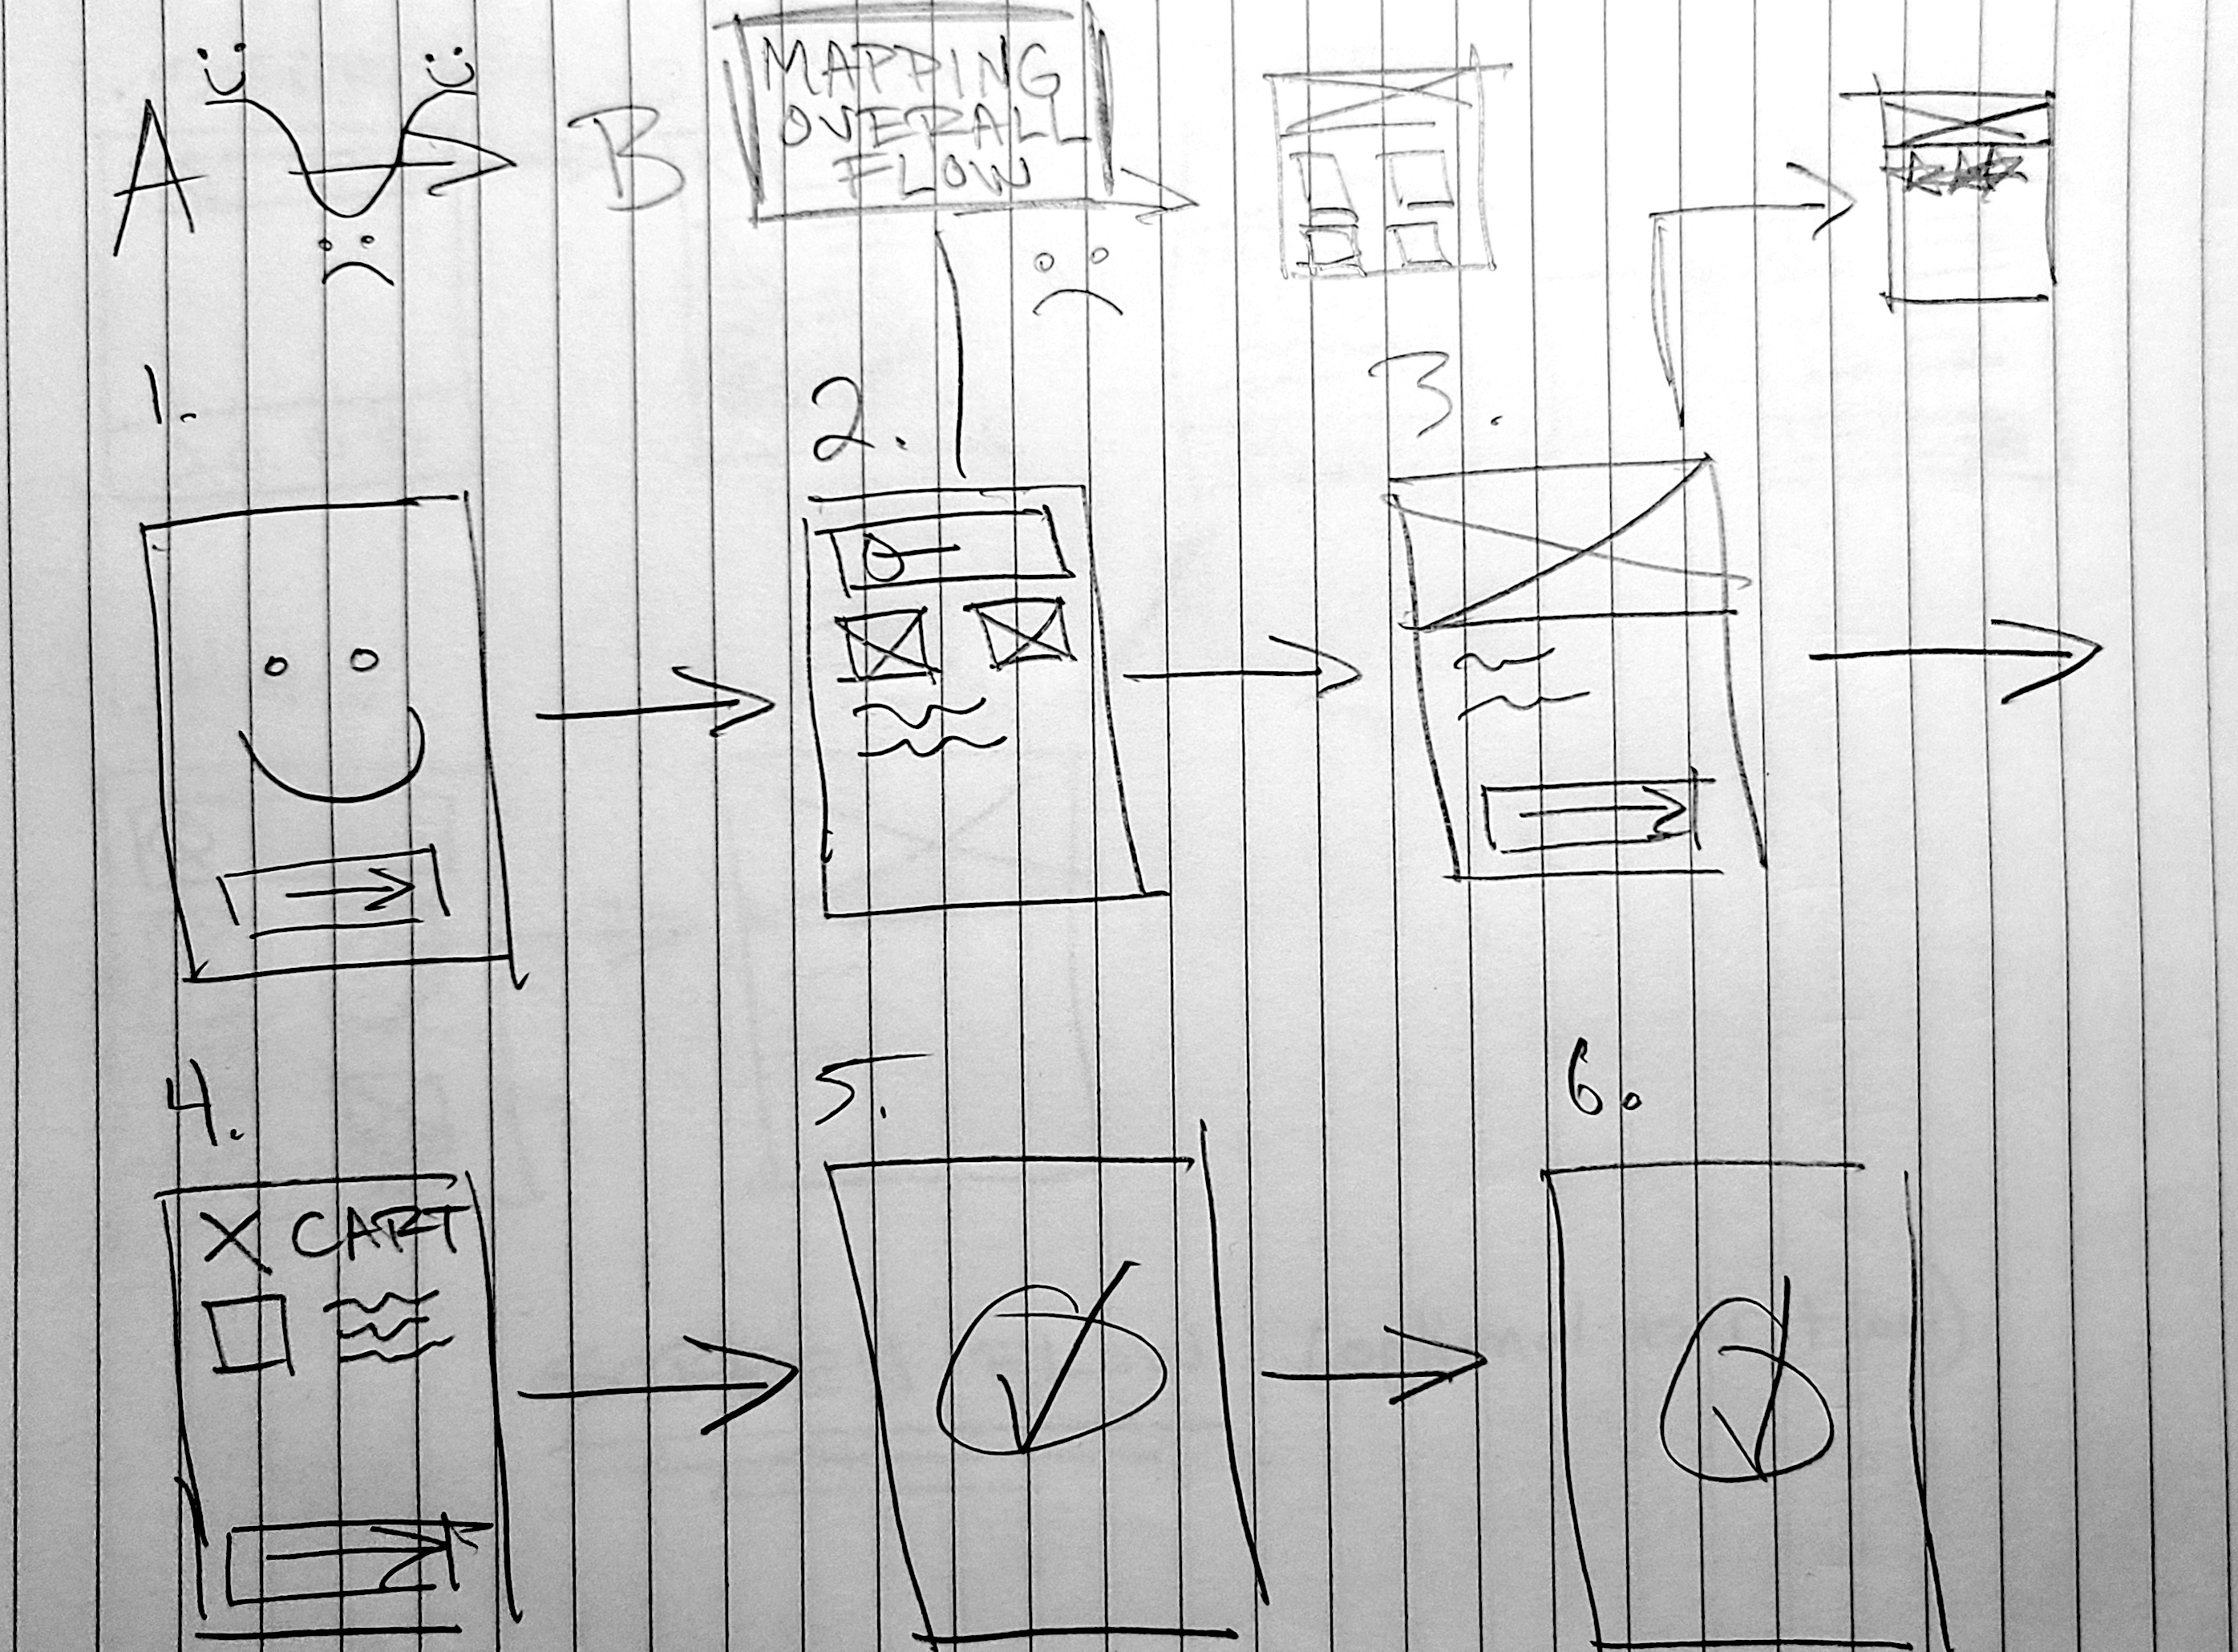 A B
MAPPING
OVERALL
FLOW
1.
2.
3.
4.
5.
6.
X CART